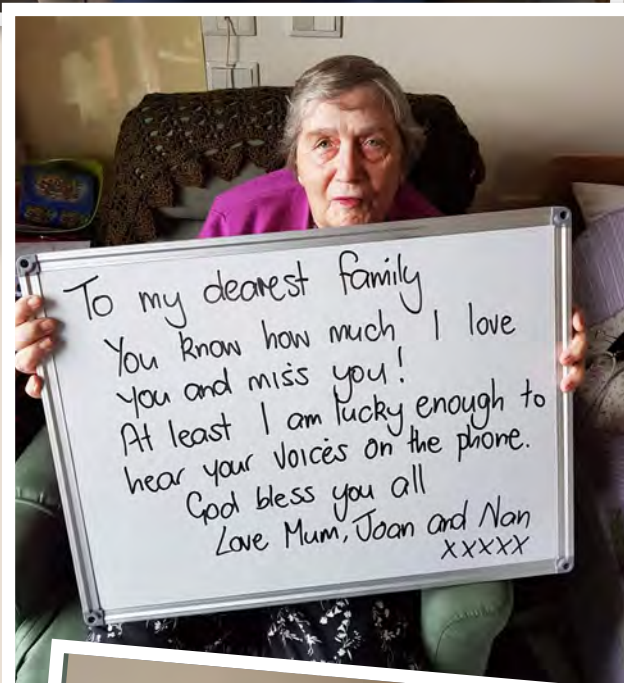 To my dearest family
You know how much I love
you and miss you!
At least I am lucky enough to
hear your voices on the phone.
God bless you all
Love Mum, Joan and Nan
xxxxx